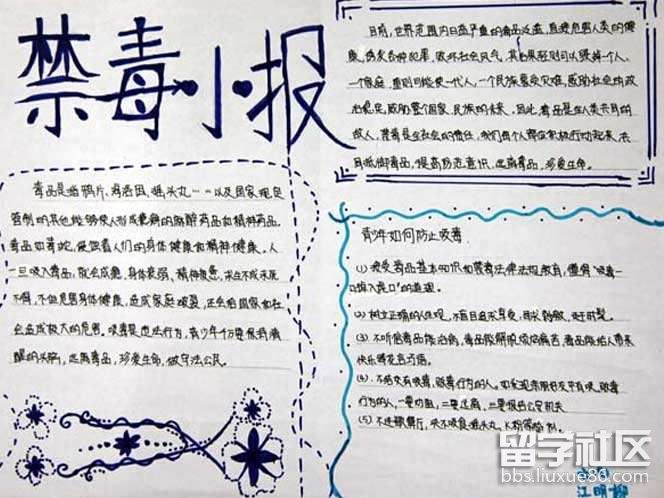 禁毒小报
目前，世界范围内日益严重的毒品泛滥，直接危害人类的健
康，诱发各种犯罪，败坏社会风气，其后果轻则可以毁掉一个人、
一个家庭，重则可能使一代人，一个民族蒙受灾难，威胁社会的政
治稳定，威胁整个国家、民族的未来。因此，毒品是全人类共同的
敌人，禁毒是全社会的责任，我们每个人都应积极行动起来，共
同抵御毒品，提高防范意识，远离毒品，珍爱生命。
毒品是指鸦片、海洛因、摇头丸……以及国家规定
管制的其他能够使人形成瘾癖的麻醉药品和精神药品。
毒品如毒蛇，侵蚀着人们的身体健康和精神健康。人
一旦吸入毒品，就会成瘾，身体衰弱，精神颓废，求生不成求死
不得，不但危害身体健康，造成家庭破裂，还会给国家和社
会造成极大的危害。吸毒是违法行为，青少年千万要保持清
醒的头脑，远离毒品，珍爱生命，做守法公民。
青少年如何防止吸毒
(1) 接受毒品基本知识和禁毒法律法规教育，懂得“吸毒一
口，掉入虎口”的道理。
(2) 树立正确的人生观，不盲目追求享受，寻求刺激，赶时髦。
(3) 不听信毒品能治病，毒品能解脱烦恼痛苦，毒品能给人带来
快乐等花言巧语。
(4) 不结交有吸毒、贩毒行为的人。如发现亲朋好友中有吸、贩毒
行为的人，一要劝阻，二要远离，三要报告公安机关
(5) 不进歌舞厅，决不吸食摇头丸、K粉等
江明
留学社区
bbs.liuxue86.com